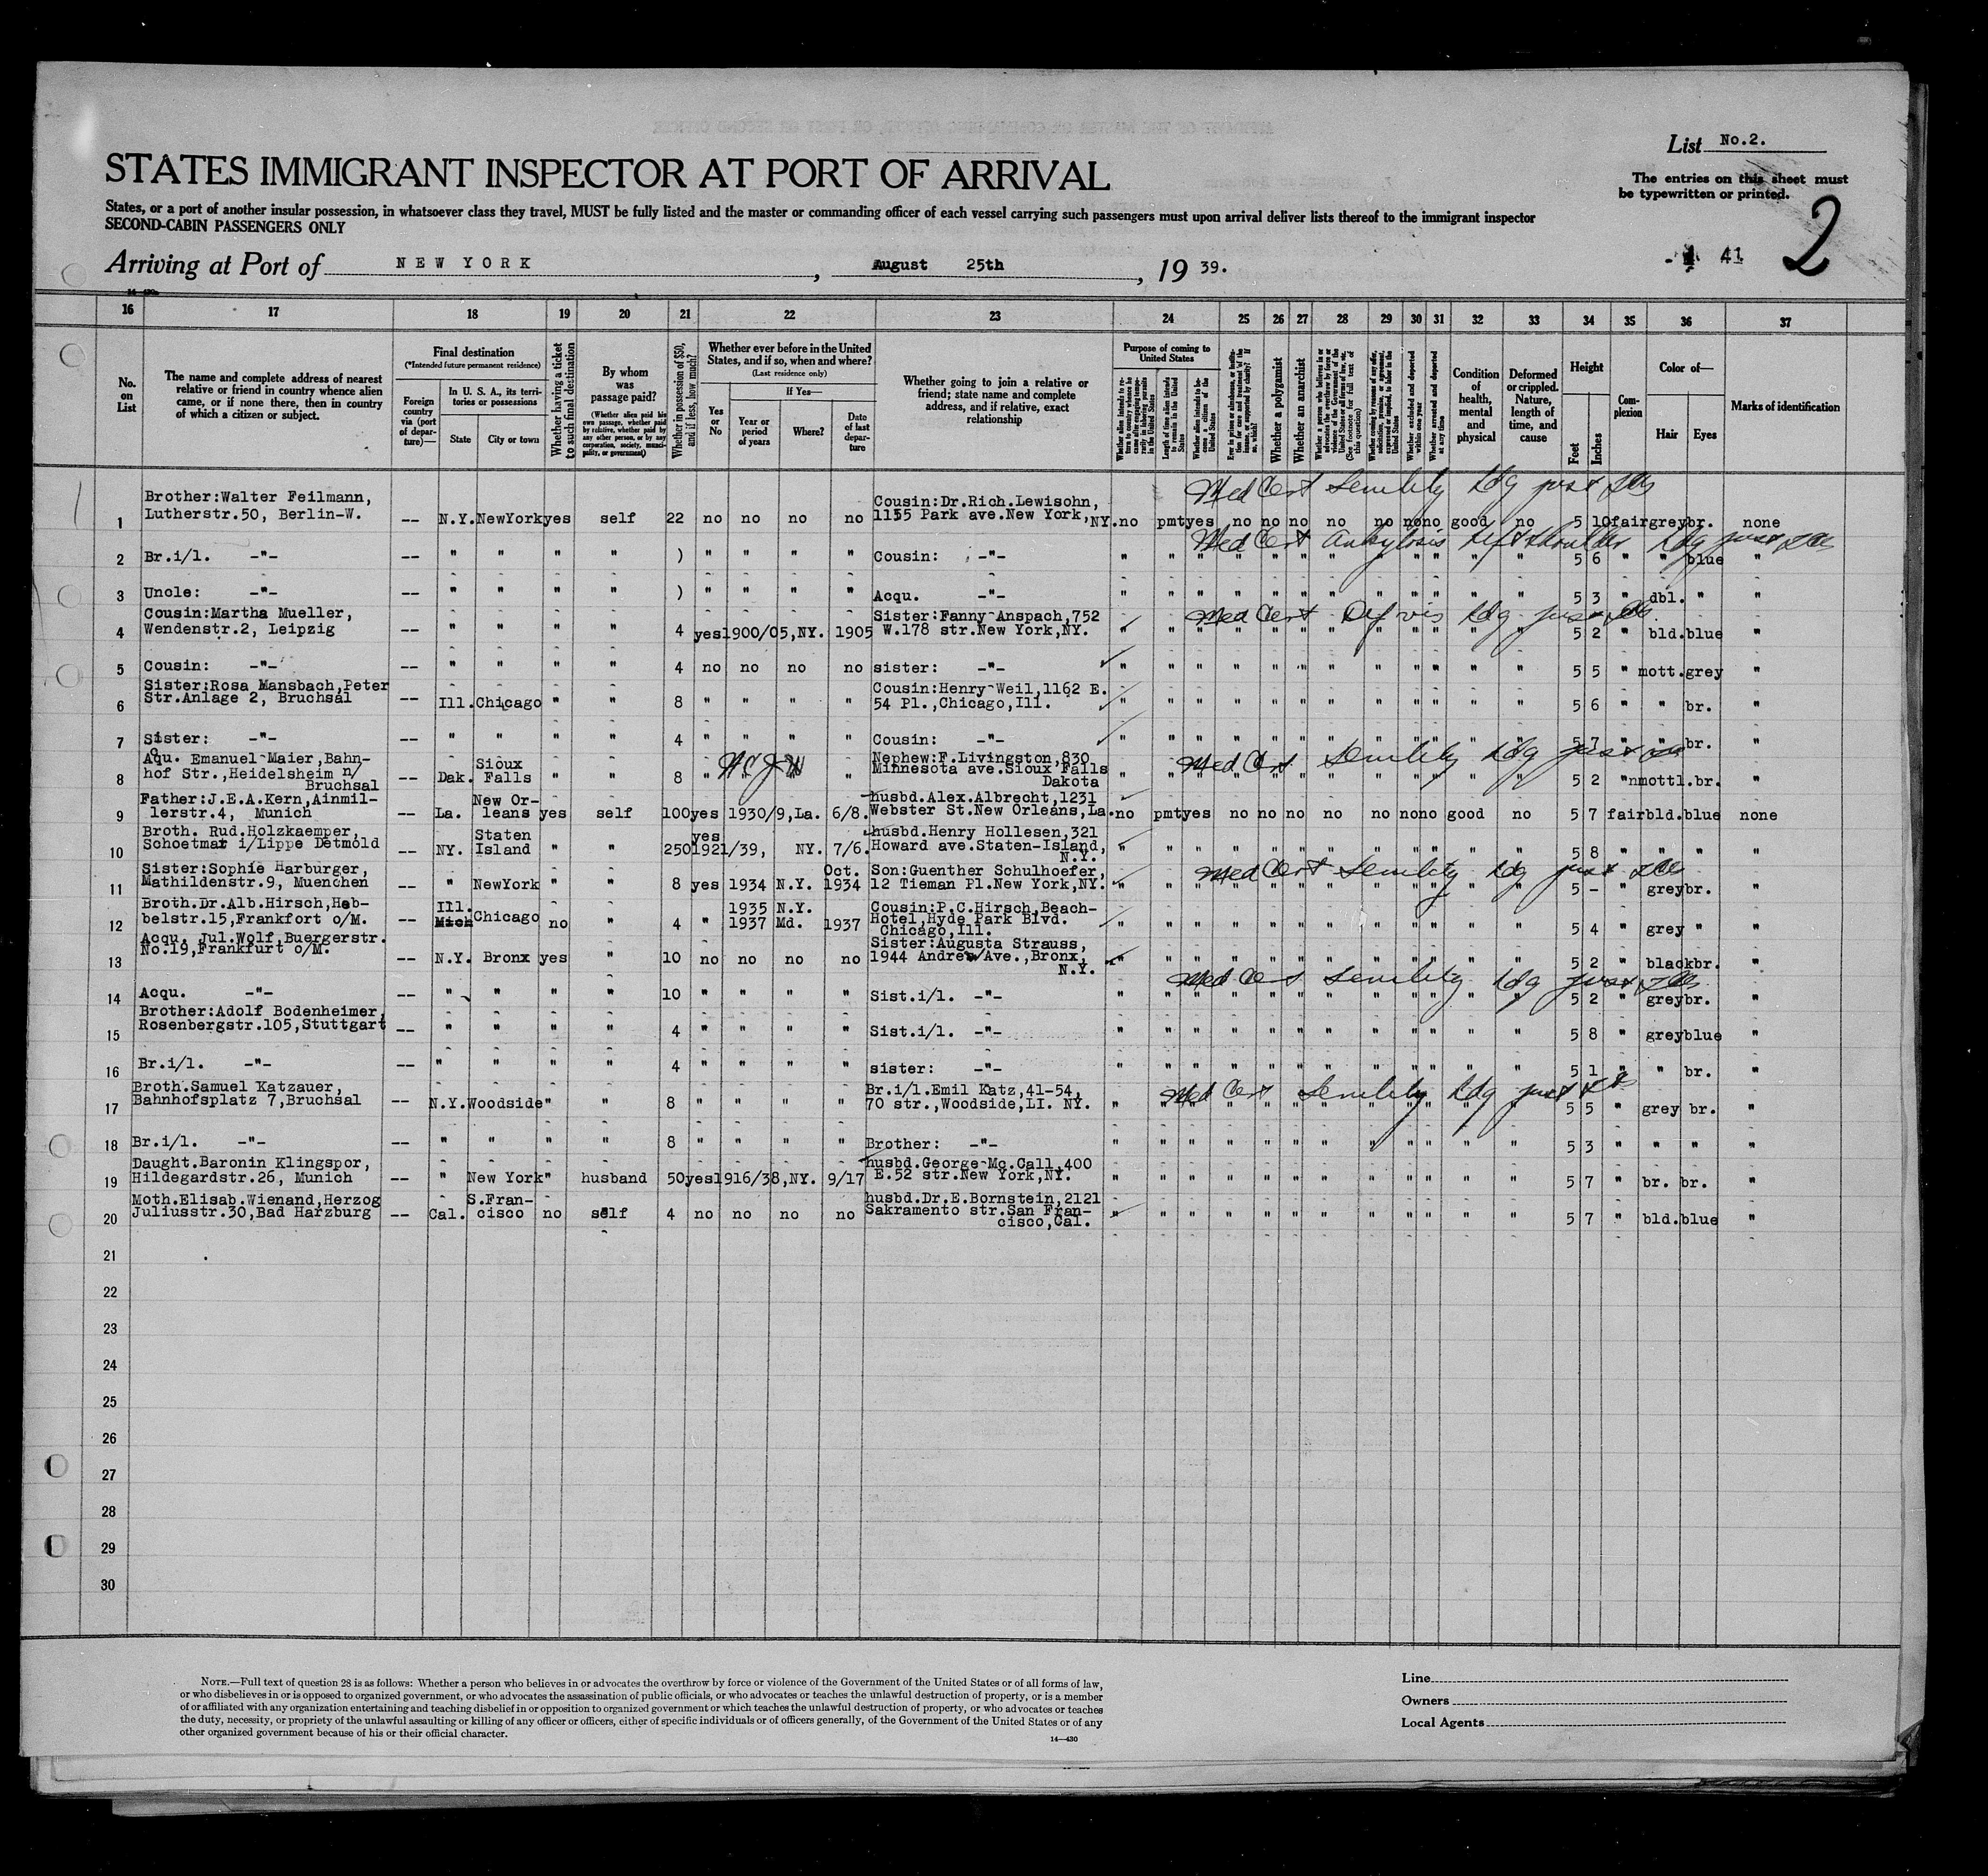 List No.2.
The entries on this sheet must
be typewritten or printed.
STATES IMMIGRANT INSPECTOR AT PORT OF ARRIVAL
States, or a port of another insular possession, in whatsoever class they travel, MUST be fully listed and the master or commanding officer of each vessel carrying such passengers must upon arrival deliver lists thereof to the immigrant inspector
SECOND-CABIN PASSENGERS ONLY
Arriving at Port of NEW YORK, August 25th, 19 39.
41 2
16 17 18 19 20 21 22 23 24 25 26 27 28 29 30 31 32 33 34 35 36 37
No. on List
The name and complete address of nearest relative or friend in country whence alien came, or if none there, then in country of which a citizen or subject.
Final destination
(*Intended future permanent residence)
Foreign country via (port of departure)—
In U. S. A., its territories or possessions
State City or town
Whether having a ticket to such final destination
By whom was passage paid?
(Whether alien paid his own passage, whether paid by relative, whether paid by any other person, or by any corporation, society, municipality, or government)
Whether in possession of $50, and if less, how much?
Whether ever before in the United States, and if so, when and where?
(Last residence only)
Yes or No
If Yes—
Year or period of years Where? Date of last departure
Whether going to join a relative or friend; state name and complete address, and if relative, exact relationship
Purpose of coming to United States
Whether a polygamist
Whether an anarchist
Whether excluded and deported within one year
Whether arrested and deported at any time
Condition of health, mental and physical
Deformed or crippled. Nature, length of time, and cause
Height
Feet Inches
Complexion
Color of—
Hair Eyes
Marks of identification
Med Cert Senility Ldg
1 Brother:Walter Feilmann, Lutherstr.50, Berlin-W. -- N.Y. NewYork yes self 22 no no no no Cousin:Dr.Rich.Lewisohn, 1155 Park ave.New York,NY. no pmt yes no no no no no no no good no 5 10 fair grey br. none
Med Cert Ankylosis left shoulder Ldg
2 Br.i/l. -"- -- " " " " ) " " " " Cousin: -"- " " " " " " " " " " " " 5 6 " " blue "
3 Uncle: -"- -- " " " " ) " " " " Acqu. -"- " " " " " " " " " " " " 5 3 " dbl. " "
Med Cert Def vis Ldg
4 Cousin:Martha Mueller, Wendenstr.2, Leipzig -- " " " " 4 yes 1900/05,NY. 1905 Sister:Fanny Anspach,752 W.178 str.New York,NY. " " " " " " " " " " " " 5 2 " bld. blue "
5 Cousin: -"- -- " " " " 4 no no no no sister: -"- " " " " " " " " " " " " 5 5 " mott. grey "
6 Sister:Rosa Mansbach,Peter Str.Anlage 2, Bruchsal -- Ill. Chicago " " 8 " " " " Cousin:Henry Weil,1162 E. 54 Pl.,Chicago,Ill. " " " " " " " " " " " " 5 6 " " br. "
7 Sister: -"- -- " " " " 4 " " " " Cousin: -"- " " " " " " " " " " " " 5 7 " " br. "
Med Cert Senility Ldg
8 Aqu. Emanuel Maier,Bahn-hof Str.,Heidelsheim n/ Bruchsal -- Dak. Sioux Falls " " 8 " " " " Nephew:F.Livingston,830 Minnesota ave.Sioux Falls Dakota " " " " " " " " " " " " 5 2 " nmottl. br. "
9 Father:J.E.A.Kern,Ainmil-lerstr.4, Munich -- La. New Or-leans yes self 100 yes 1930/9,La. 6/8. husbd.Alex.Albrecht,1231 Webster St.New Orleans,La. no pmt yes no no no no no no no good no 5 7 fair bld. blue none
10 Broth. Rud.Holzkaemper, Schoetmar i/Lippe Detmold -- NY. Staten Island " " 250 yes 1921/39, NY. 7/6. husbd.Henry Hollesen,321 Howard ave.Staten-Island, N.Y. " " " " " " " " " " " " 5 8 " " " "
Med Cert Senility Ldg
11 Sister:Sophie Harburger, Mathildenstr.9, Muenchen -- " NewYork " " 8 yes 1934 N.Y. Oct. 1934 Son:Guenther Schulhoefer, 12 Tieman Pl.New York,NY. " " " " " " " " " " " " 5 - " grey br. "
12 Broth.Dr.Alb.Hirsch,Heb-belstr.15,Frankfort o/M. -- Ill. Mich Chicago no " 4 " 1935 N.Y. 1937 Md. 1937 Cousin:P.C.Hirsch,Beach-Hotel,Hyde Park Blvd. Chicago,Ill. " " " " " " " " " " " " 5 4 " grey " "
13 Acqu. Jul.Wolf,Buergerstr. No.19,Frankfurt o/M. -- N.Y. Bronx yes " 10 no no no no Sister:Augusta Strauss, 1944 Andrew Ave.,Bronx, N.Y. " " " " " " " " " " " " 5 2 " black br. "
Med Cert Senility Ldg
14 Acqu. -"- -- " " " " 10 " " " " Sist.i/l. -"- " " " " " " " " " " " " 5 2 " grey br. "
15 Brother:Adolf Bodenheimer, Rosenbergstr.105,Stuttgart -- " " " " 4 " " " " Sist.i/l. -"- " " " " " " " " " " " " 5 8 " grey blue "
16 Br.i/l. -"- -- " " " " 4 " " " " sister: -"- " " " " " " " " " " " " 5 1 " " br. "
Med Cert Senility Ldg
17 Broth.Samuel Katzauer, Bahnhofsplatz 7,Bruchsal -- N.Y. Woodside " " 8 " " " " Br.i/l.Emil Katz,41-54, 70 str.,Woodside,LI. NY. " " " " " " " " " " " " 5 5 " grey br. "
18 Br.i/l. -"- -- " " " " 8 " " " " Brother: -"- " " " " " " " " " " " " 5 3 " " " "
19 Daught.Baronin Klingspor, Hildegardstr.26, Munich -- " New York " husband 50 yes 1916/38,NY. 9/17 husbd.George Mc.Call,400 E.52 str.New York,NY. " " " " " " " " " " " " 5 7 " br. br. "
20 Moth.Elisab.Wienand,Herzog Juliusstr.30,Bad Harzburg -- Cal. S.Fran-cisco no self 4 no no no no husbd.Dr.E.Bornstein,2121 Sakramento str.San Fran-cisco,Cal. " " " " " " " " " " " " 5 7 " bld. blue "
21
22
23
24
25
26
27
28
29
30
NOTE.—Full text of question 28 is as follows: Whether a person who believes in or advocates the overthrow by force or violence of the Government of the United States or of all forms of law,
or who disbelieves in or is opposed to organized government, or who advocates the assassination of public officials, or who advocates or teaches the unlawful destruction of property, or is a member
of or affiliated with any organization entertaining and teaching disbelief in or opposition to organized government or which teaches the unlawful destruction of property, or who advocates or teaches
the duty, necessity, or propriety of the unlawful assaulting or killing of any officer or officers, either of specific individuals or of officers generally, of the Government of the United States or of any
other organized government because of his or their official character.
14—430
Line
Owners
Local Agents